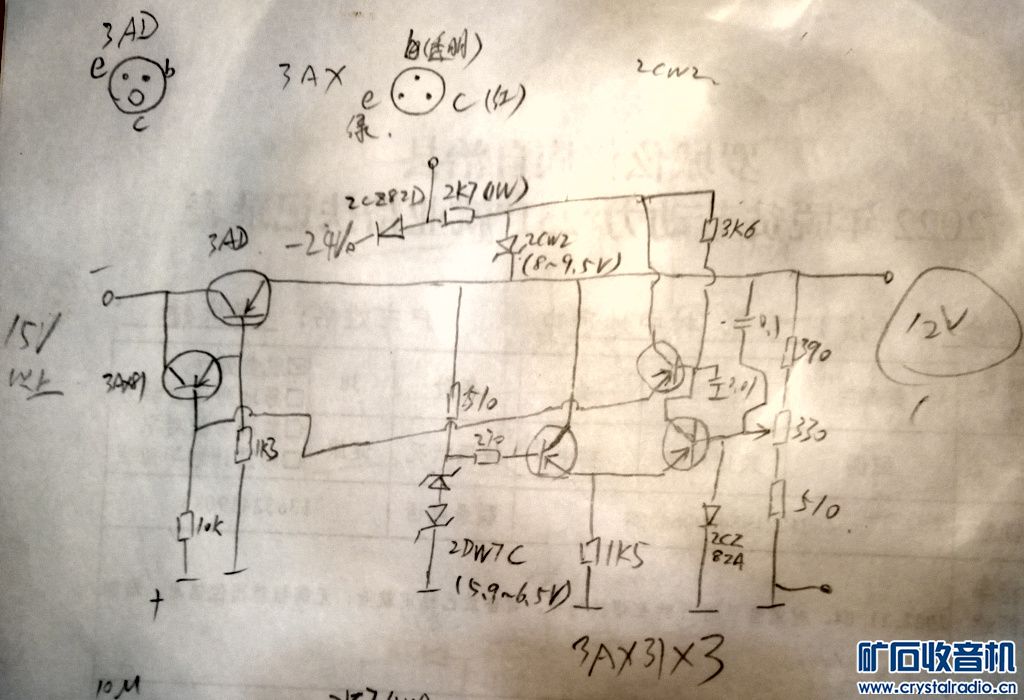 3AD
e b
c
3AX
白(透明)
e c (红)
绿.
2CW2
2CZ82D
2K7(1W)
3AD
-24V
2CW2
(8~9.5V)
3K6
-
15V
以上
3AX81
1K3
510
270
0.1
0.01
390
330
12V
10K
+
2DW7C
(5.9~6.5V)
1K5
2CZ
82A
510
3AX31×3
10M
矿石收音机
www.crystalradio.cn